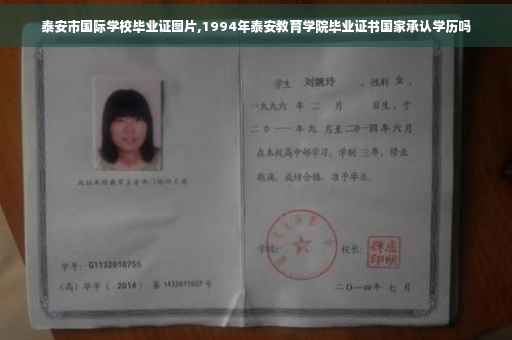 泰安市国际学校毕业证图片,1994年泰安教育学院毕业证书国家承认学历吗
学生 刘婉玲 ，性别 女 ，
一九九六 年 二 月 日生，于
二0一一 年 九 月至 二0一四 年 六 月
在本校高中部学习，学制 三年，修业
期满，成绩合格，准予毕业。
学校： 校长：
二〇一四年 七 月
学号：G1132010755
（高）毕字（ 2014 ）第 号